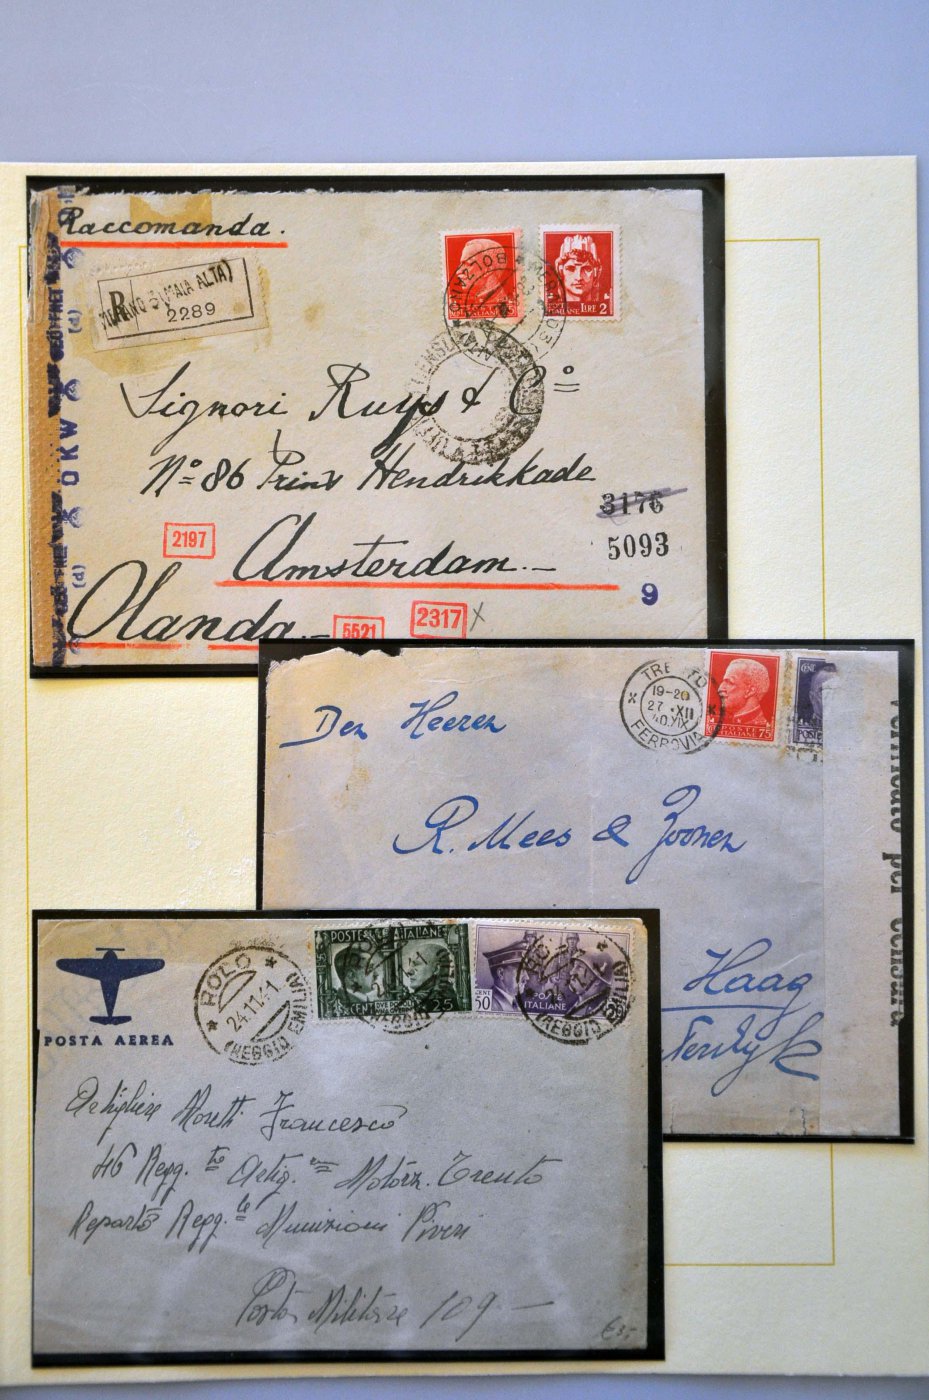 Raccomanda.
R
MERANO 3 (MAIA ALTA)
2289
BOLZANO
LIRE 2
ITALIANE
Signori Ruys & Cº
Nº 86 Prins Hendrikkade
3176
5093
9
2197
Amsterdam.-
Olanda.-
5521
2317 x
OKW
(d)
(d)
Den Heeren
R. Mees & Zoonen
Haag
TRENTO
19-20
27 XII
40.XIX
FERROVIA
POSTE
ITALIANE 75
CENT
POSTE
Verificato per censura
POSTA AEREA
ROLO
24.11.41
(REGGIO EMILIA)
POSTE ITALIANE
CENT. 25
50 CENT
POSTE
ITALIANE
(REGGIO EMILIA)
Artigliere Moretti Francesco
46 Regg.to Artig.em Motorz. Trento
Reparto Regg.le Munizioni Viveri
Posta Militare 109 —